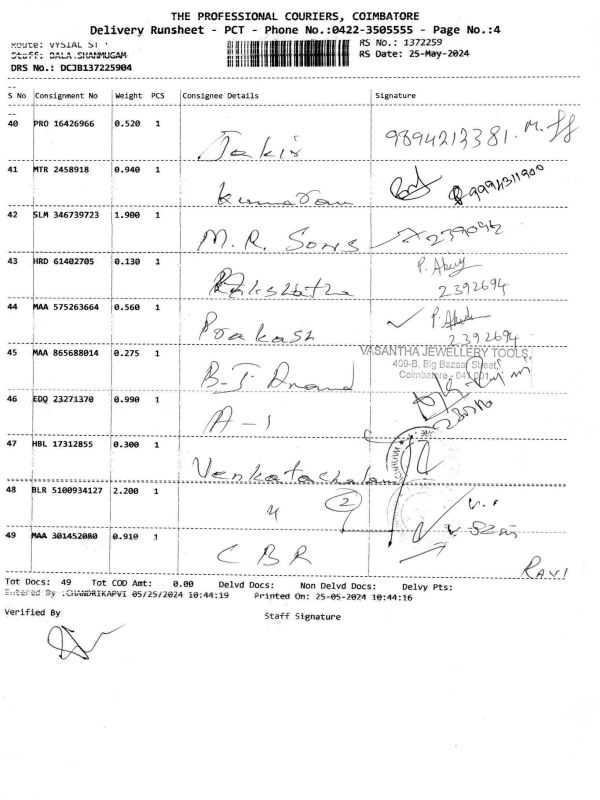 THE PROFESSIONAL COURIERS, COIMBATORE
Delivery Runsheet - PCT - Phone No.:0422-3505555 - Page No.:4
Route: VYSIAL ST RS No.: 1372259
Staff: BALA SHANMUGAM RS Date: 25-May-2024
DRS No.: DCJB137225904
S No Consignment No Weight PCS Consignee Details Signature
40 PRO 16426966 0.520 1 Jakir 9894213381
41 MTR 2458918 0.940 1 Kumaran 9994311900
42 SLM 346739723 1.900 1 M.R. Sons
43 HRD 61402705 0.130 1 Rakshatha 2392694
44 MAA 575263664 0.560 1 Prakash 2392694
VASANTHA JEWELLERY TOOLS,
409-B, Big Bazaar Street,
Coimbatore - 641 001
45 MAA 865688014 0.275 1 B.J. Anand
46 EDQ 23271370 0.990 1 A-1
47 HBL 17312855 0.300 1 Venkatachalam
48 BLR 5100934127 2.200 1 " 2
49 MAA 301452080 0.910 1 CBR RAVI
Tot Docs: 49 Tot COD Amt: 0.00 Delvd Docs: Non Delvd Docs: Delvy Pts:
Entered By :CHANDRIKAPVI 05/25/2024 10:44:19 Printed On: 25-05-2024 10:44:16
Verified By Staff Signature